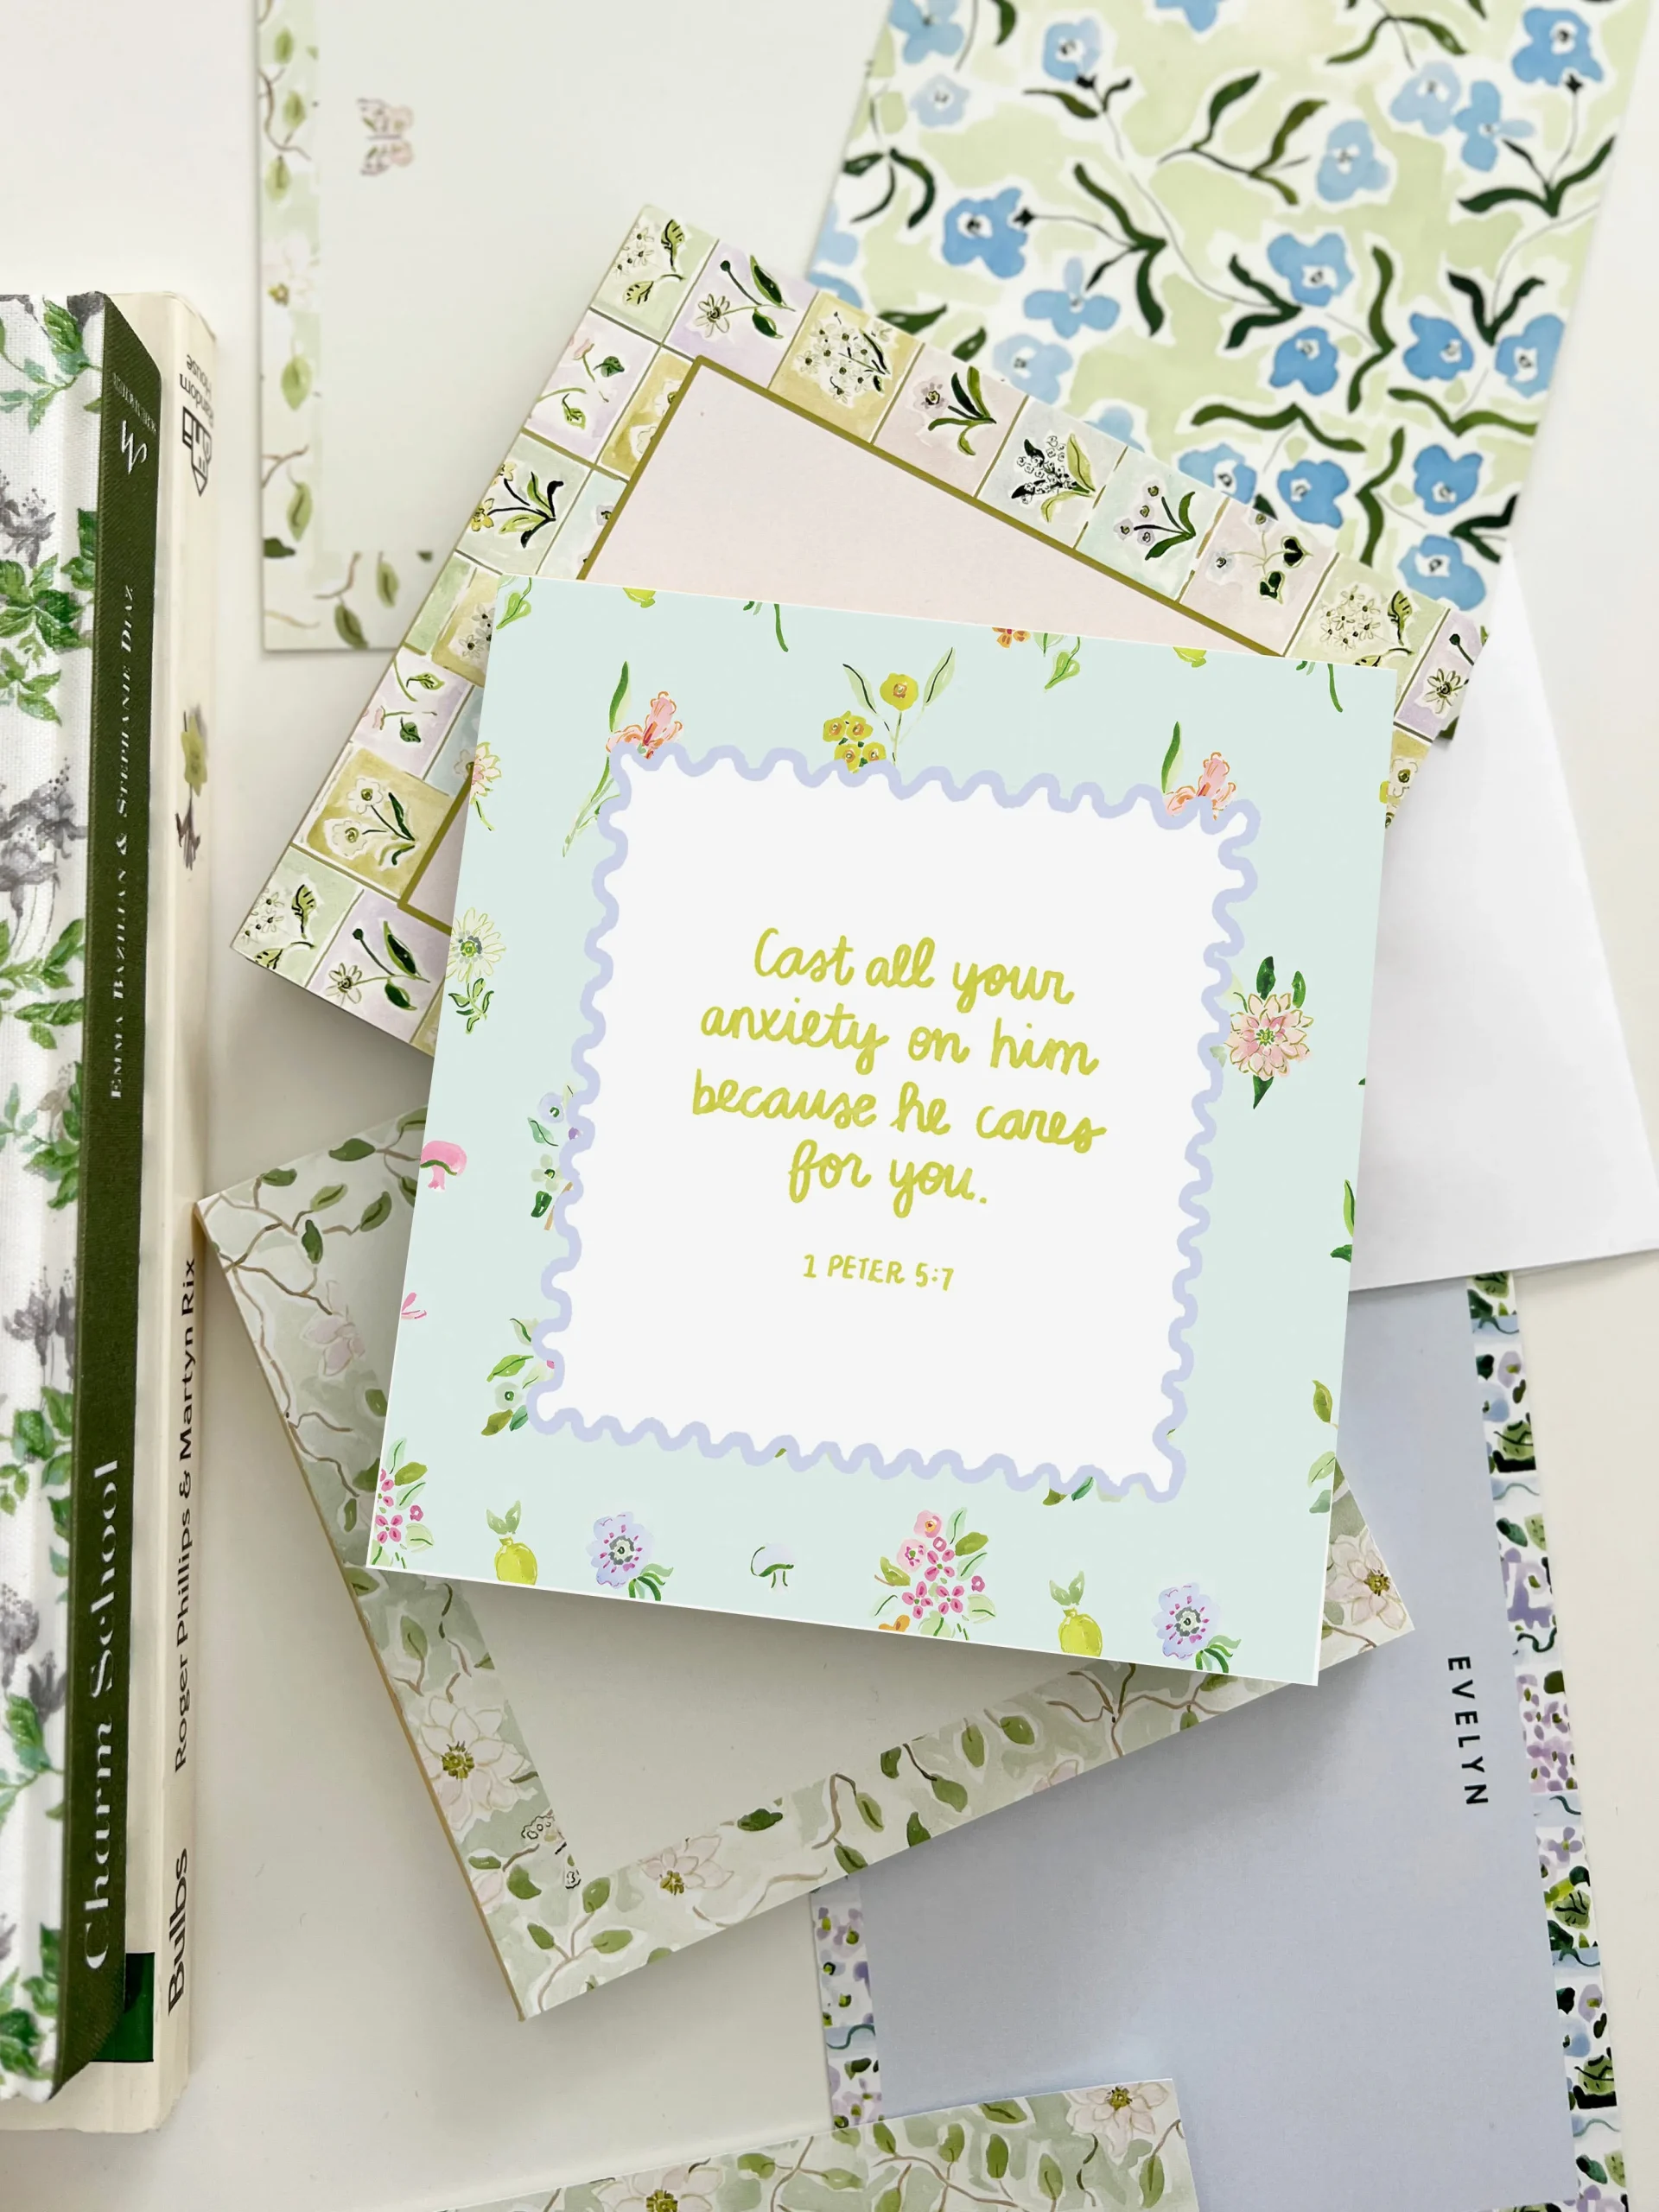 Cast all your
anxiety on him
because he cares
for you.
1 PETER 5:7
EVELYN
Charm School
EMMA BAZILIAN & STEPHANIE DIAZ
Bulbs
Roger Phillips & Martyn Rix
Random
House